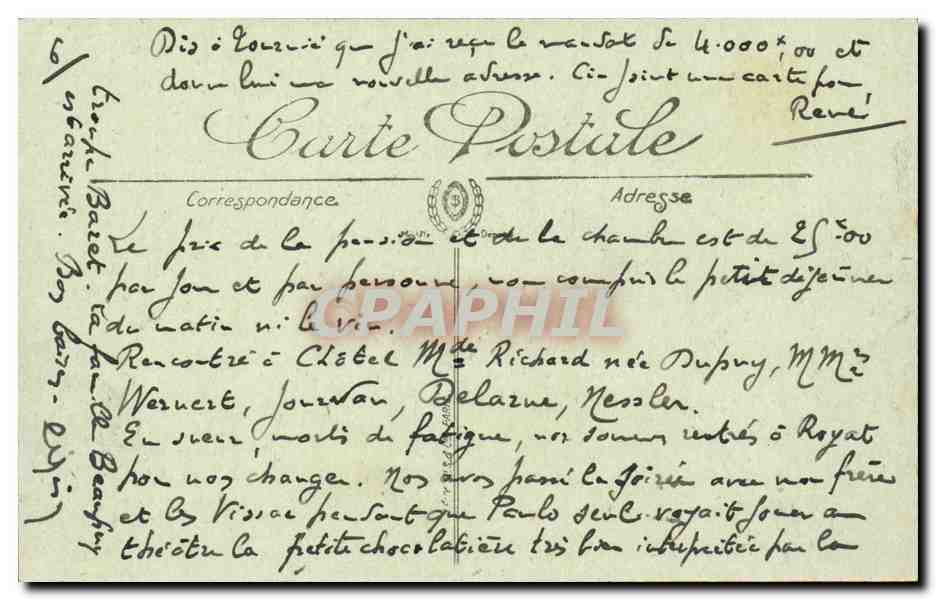 Dis à que j'ai reçu le mandat de 4.000x,00 et
donne lui ma nouvelle adresse. Ci-joint une carte pour
René
Carte Postale
Correspondance
Adresse
Le prix de la pension et de la chambre est de 25x00
par jour et par personne, non compris le petit déjeuner
du matin ni le vin.
CPAPHIL
Rencontré à Châtel Mde Richard née Dupuy, MMrs
Wernert, Jourdan, Delarue, Nessler.
En sueur, morts de fatigue, nous sommes rentrés à Royat
pour nous changer. Nous avons passé la soirée avec mon frère
et les Vissac pendant que Paulo seul voyait jouer au
théâtre la petite chocolatière très bien interprétée par la
troupe Baret. La famille Beaufour
est arrivée. Bons baisers